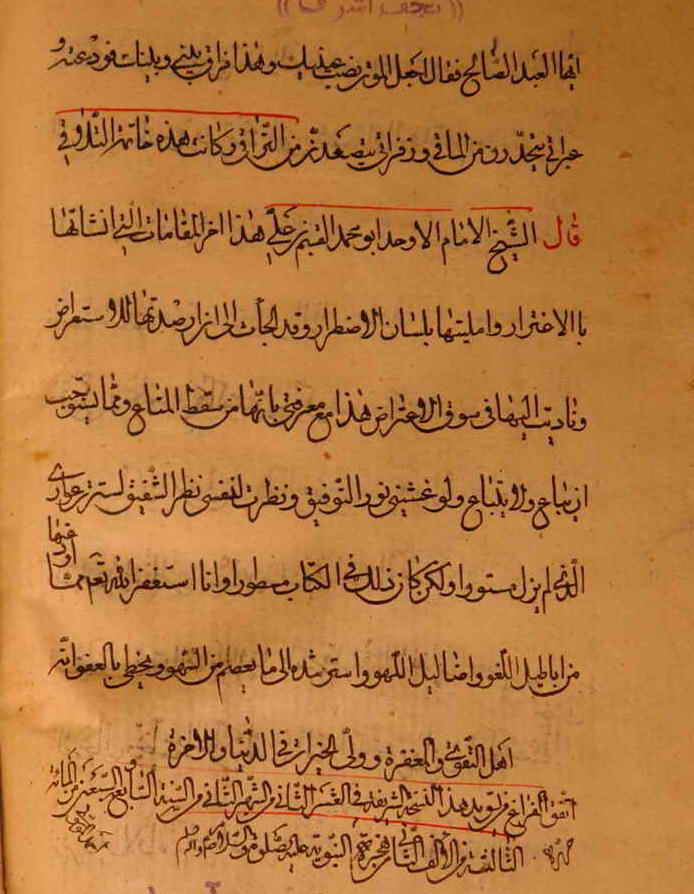 ايها العبد الصالح فقال اجعل الموت نصب عينيك وهذا فراق بيني وبينك فودعته و
عبراتي يتحدرن من المآقي وزفراتي يتصعدن من التراقي وكانت هذه خاتمة التلاقي
قال الشيخ الامام الاوحد ابو محمد القسيم بن علي هذا اخر المقامات التي انشأتها
باالاغترار وامليتها بلسان الاضطرار وقد الجأت الى ان ارصدتها للاستعراض
وناديت اليها في سوق الاعتراض هذا مع معرفتي بانها من سقط المتاع ومما يستوجب
ان يباع ولا يبتاع ولو غشيني نور التوفيق ونظرت لنفسي نظر الشفيق لسترت عواري
الذي لم يزل مستورا ولكن كان ذلك في الكتاب مسطورا وانا استغفر الله تعم مما اودعتها
من اباطيل اللغو واضاليل اللهو واسترشده الى ما يعصم من السهو ويحظي بالعفو انه
اهل التقوى والمغفرة وولي الخيرات في الدنيا والاخرة
اتفق الفراغ من تسويد هذا النسخة الشريفة في العشر الثاني من الشهر الثاني من السنة التاسع والتسعين من المائة
الثالثة من الالف الثاني من هجرة النبوية عليه الصلوة والسلام